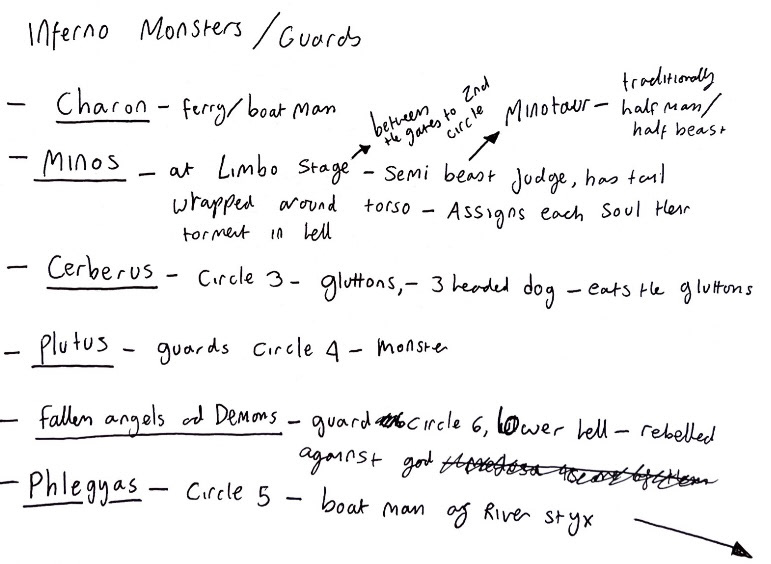 Inferno Monsters/Guards
- Charon - ferry/boat man
between the gates to 2nd circle
Minotaur - traditionally half man/ half beast
- Minos - at Limbo stage - Semi beast Judge, has tail
wrapped around torso - Assigns each soul their
torment in hell
- Cerberus - Circle 3 - gluttons, - 3 headed dog - eats the gluttons
- Plutus - guards Circle 4 - Monster
- fallen angels and Demons - guard Circle 6, lower hell - rebelled
against god
- Phlegyas - Circle 5 - boat man of River styx